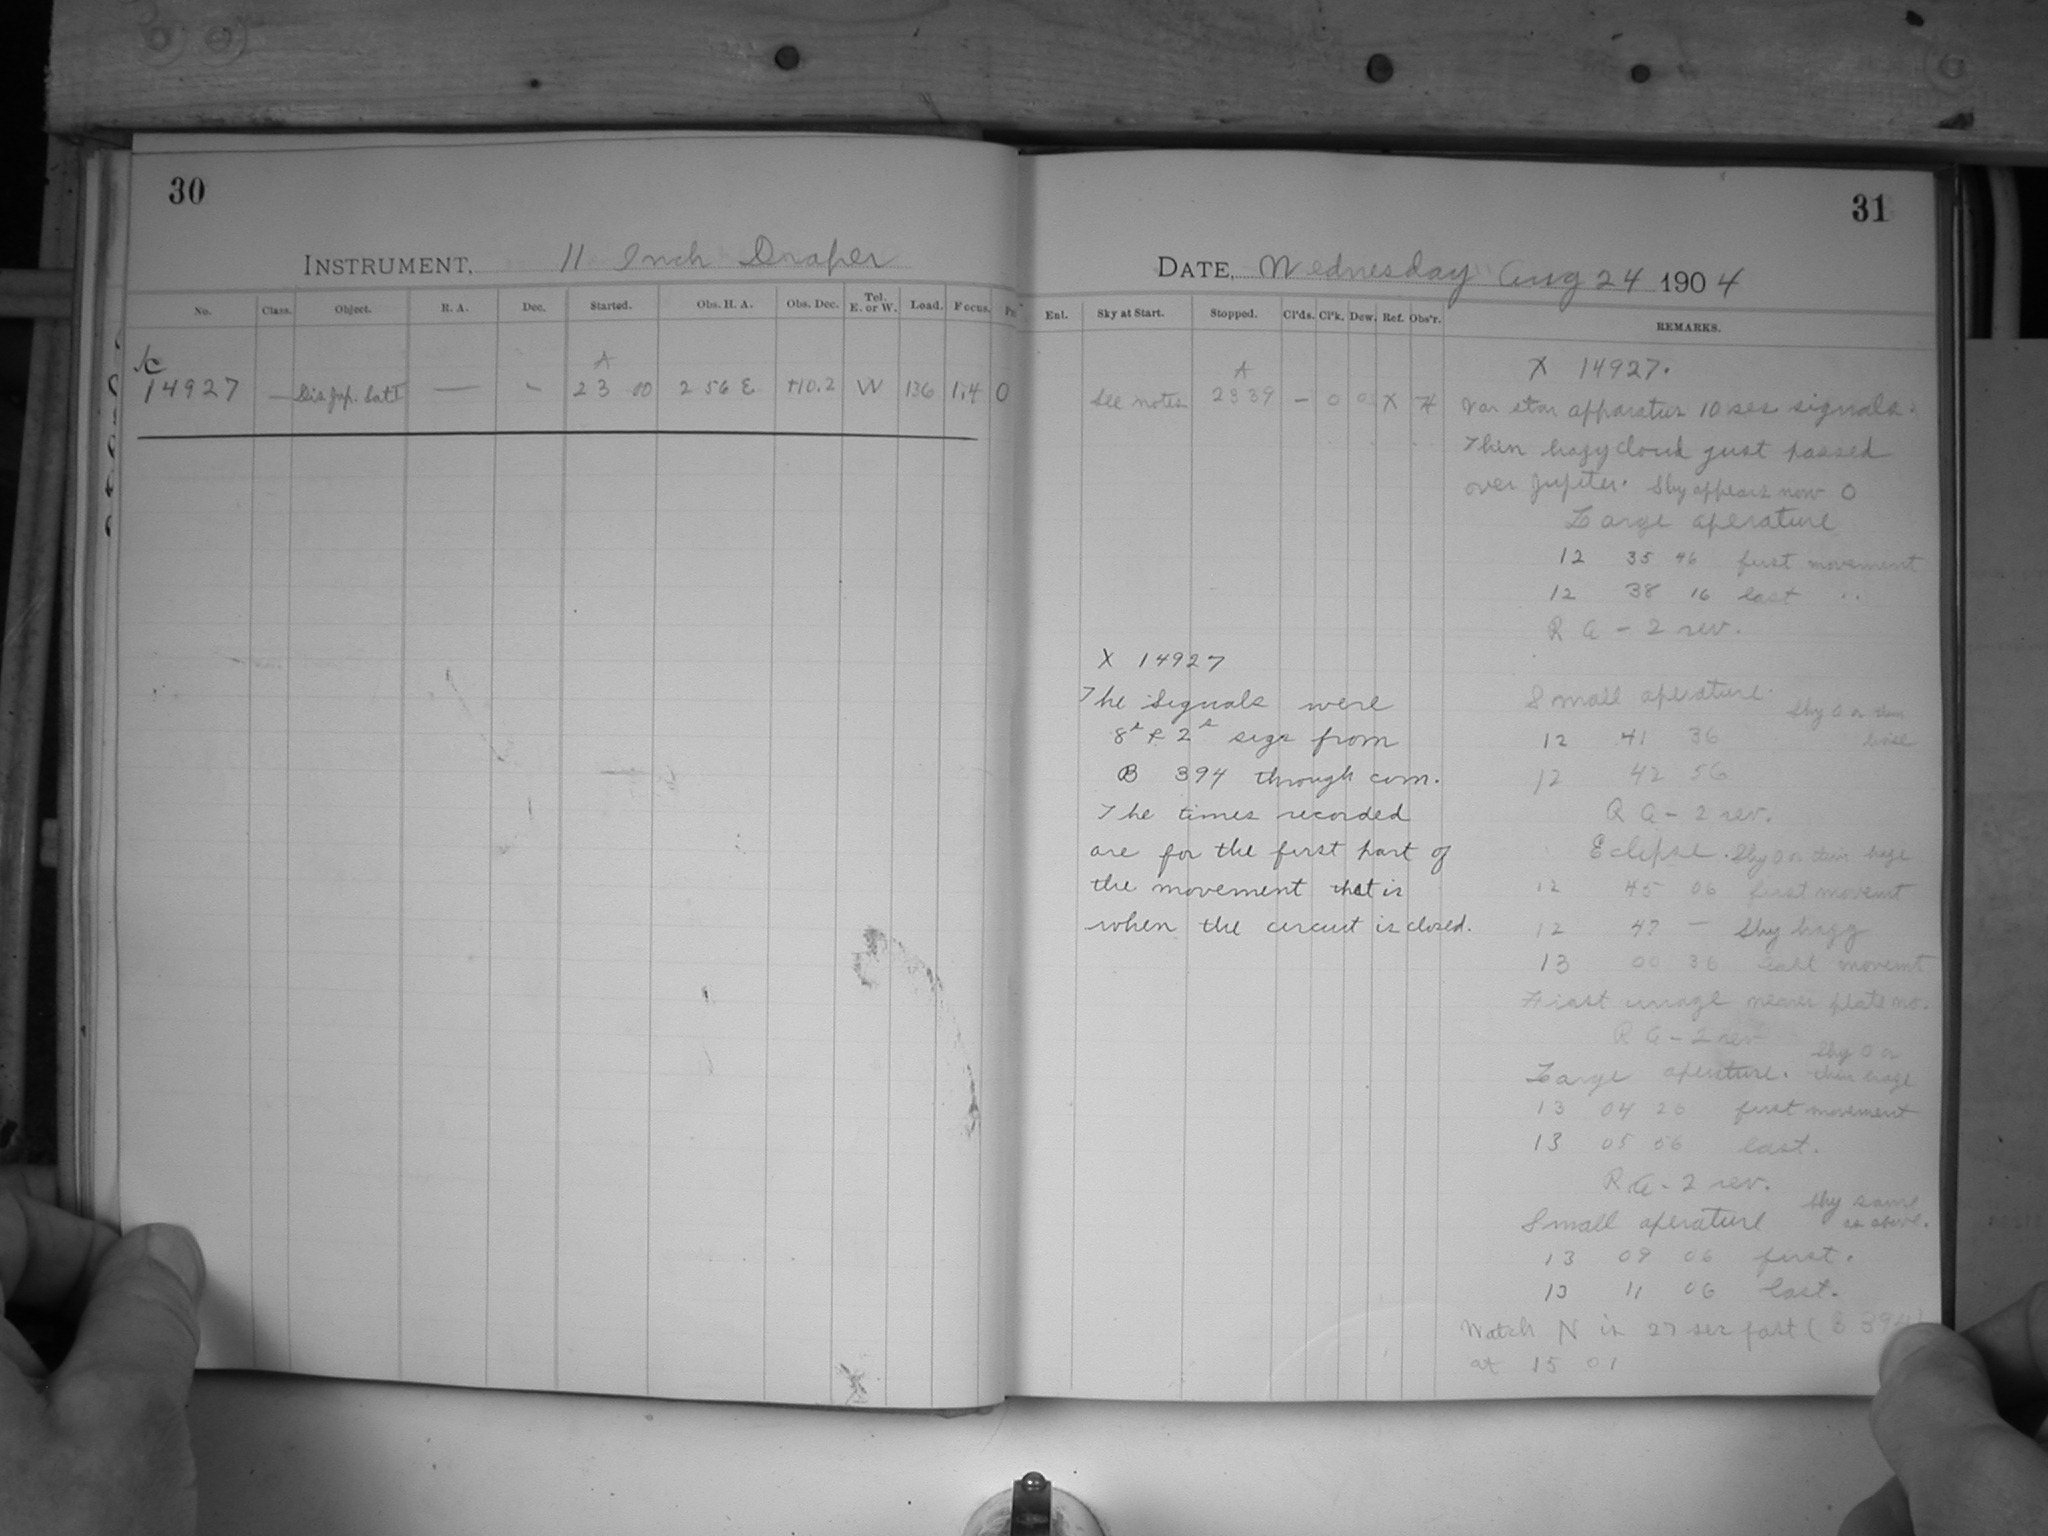 30
INSTRUMENT, 11 Inch Draper
No. Class. Object. R. A. Dec. Started. Obs. H. A. Obs. Dec. Tel. E. or W. Load. Focus.
A
14927 — Dis Jup. Satl — - 23 00 2 56 E +10.2 W 136 1.4 0
31
DATE, Wednesday Aug 24 1904
Enl. Sky at Start. Stopped. Cl'ds. Cl'k. Dew. Ref. Obs'r. REMARKS.
A
See notes 23 39 – 0 X
X 14927.
Var star apparatus 10 sec signals.
Thin hazy cloud just passed
over Jupiter. Sky appears now 0
Large aperature
12 35 46 first movement
12 38 16 last "
R A – 2 rev.
Small aperature. Sky 0 or thin
12 41 36
12 42 56
R A – 2 rev.
Eclipse. Sky 0 or thin haze
12 45 06 first movemt
12 47 — Sky hazy
13 00 36 last movemt
First image nearer plate no.
R A – 2 rev
Large aperature. Sky 0 or thin haze
13 04 26 first movement
13 05 56 last.
R A - 2 rev.
Small aperature Sky same as above.
13 09 06 first.
13 11 06 last.
Watch N is 27 sec fast ( B 394)
at 15 01
X 14927
The signals were
8s & 2s sigs from
B 394 through com.
The times recorded
are for the first part of
the movement that is
when the circuit is closed.